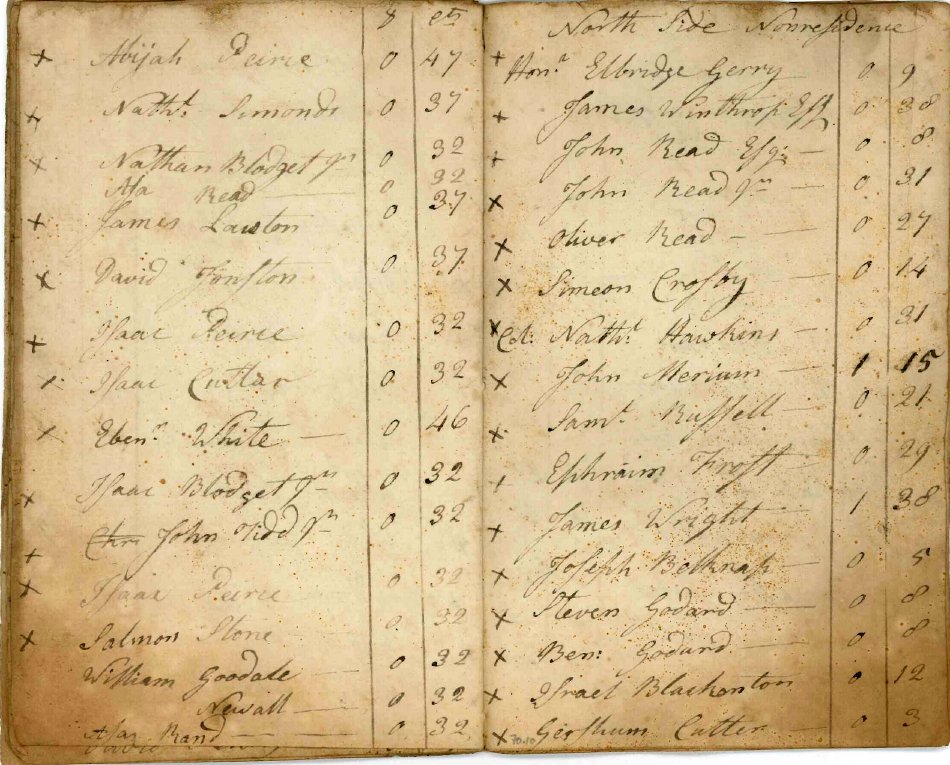 $ cts
× Abijah Peirce 0 47
× Nathl. Simonds 0 37
× Nathan Blodget Jun 0 32
Asa Read — 0 32
× James Lawton 0 37
× David Jonston 0 37
× Isaac Peirce 0 32
Isaac Cuttar 0 32
× Ebenr. White — 0 46
× Isaac Blodget Jun 0 32
× John Tidd Jun 0 32
× Isaac Peirce 0 32
× Salmon Stone 0 32
William Goodale — 0 32
Newall — 0 32
Asa Rand — 0 32
North Side Nonresidence
× Honr. Elbridge Gerry 0 9
× James Winthrop Esq 0 38
× John Read Esq: — 0 8
× John Read Jun — 0 31
× Oliver Read — 0 27
× Simeon Crosby — 0 14
× Col: Nathl. Hawkins — 0 31
× John Merium — 1 15
× Saml. Russell — 0 21
Ephraim Frost — 0 29
× James Wright — 1 38
× Joseph Belknap — 0 5
× Steven Godard — 0 8
× Ben: Godard — 0 8
× Israel Blackenton 0 12
× Gershum Cutter — 0 3
70.10